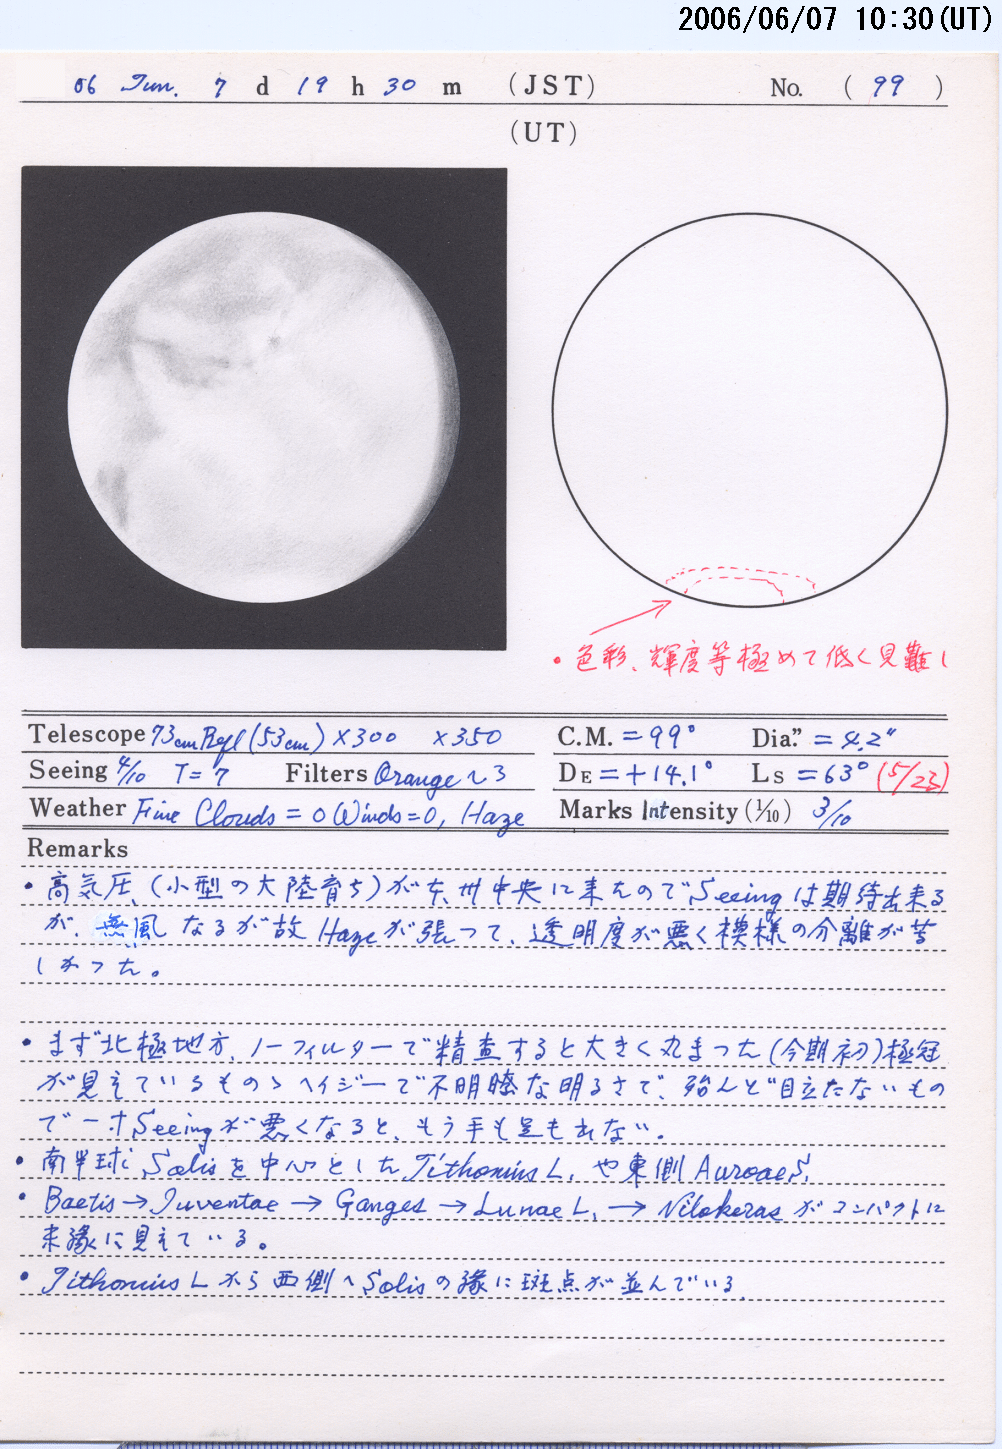 2006/06/07 10:30(UT)
06 Jun. 7 d 19 h 30 m (JST) No. (99)
(UT)
• 色彩、輝度等極めて低く見難し
Telescope 73cm Refl (53cm) ×300 ×350 C.M. = 99° Dia." = 4.2"
Seeing 4/10 T= 7 Filters Orange ~ 3 DE = +14.1° LS = 63° (5/23)
Weather Fine Clouds = 0 Winds = 0, Haze Marks Intensity (1/10) 3/10
Remarks
• 高気圧、(小型の大陸育ち)が 中央に来たのでSeeingは期待出来る
が、無風なるが故Hazeが張って、透明度が悪く模様の分離が苦
しかった。
• まず北極地方、ノーフィルターで精査すると大きく丸まった(今期初)極冠
が見えているもののヘイジーで不明瞭な明るさで、殆んど目立たないもの
で一寸Seeingが悪くなると、もう手も足も出ない。
• 南半球は Solisを中心とした Tithonius L. や東側 Aurorae S.
• Baetis → Juventae → Ganges → Lunae L. → Nilokeras がコンパクトに
東縁に見えている。
• Tithonius L から西側へSolisの縁に斑点が並んでいる